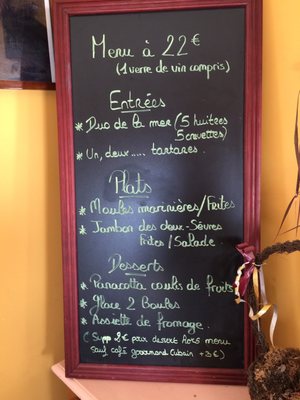 Menu à 22€
(1 verre de vin compris)
Entrées
* Duo de la mer (5 huitres
5 crevettes)
* Un, deux..... tartares.
Plats
* Moules marinières/Frites
* Jambon des deux-Sèvres
Frites/Salade
Desserts
* Panacotta coulis de fruits
* Glace 2 Boules
* Assiette de fromage.
(Supp 2€ pour dessert hors menu
sauf café gourmand Cubain +3€)